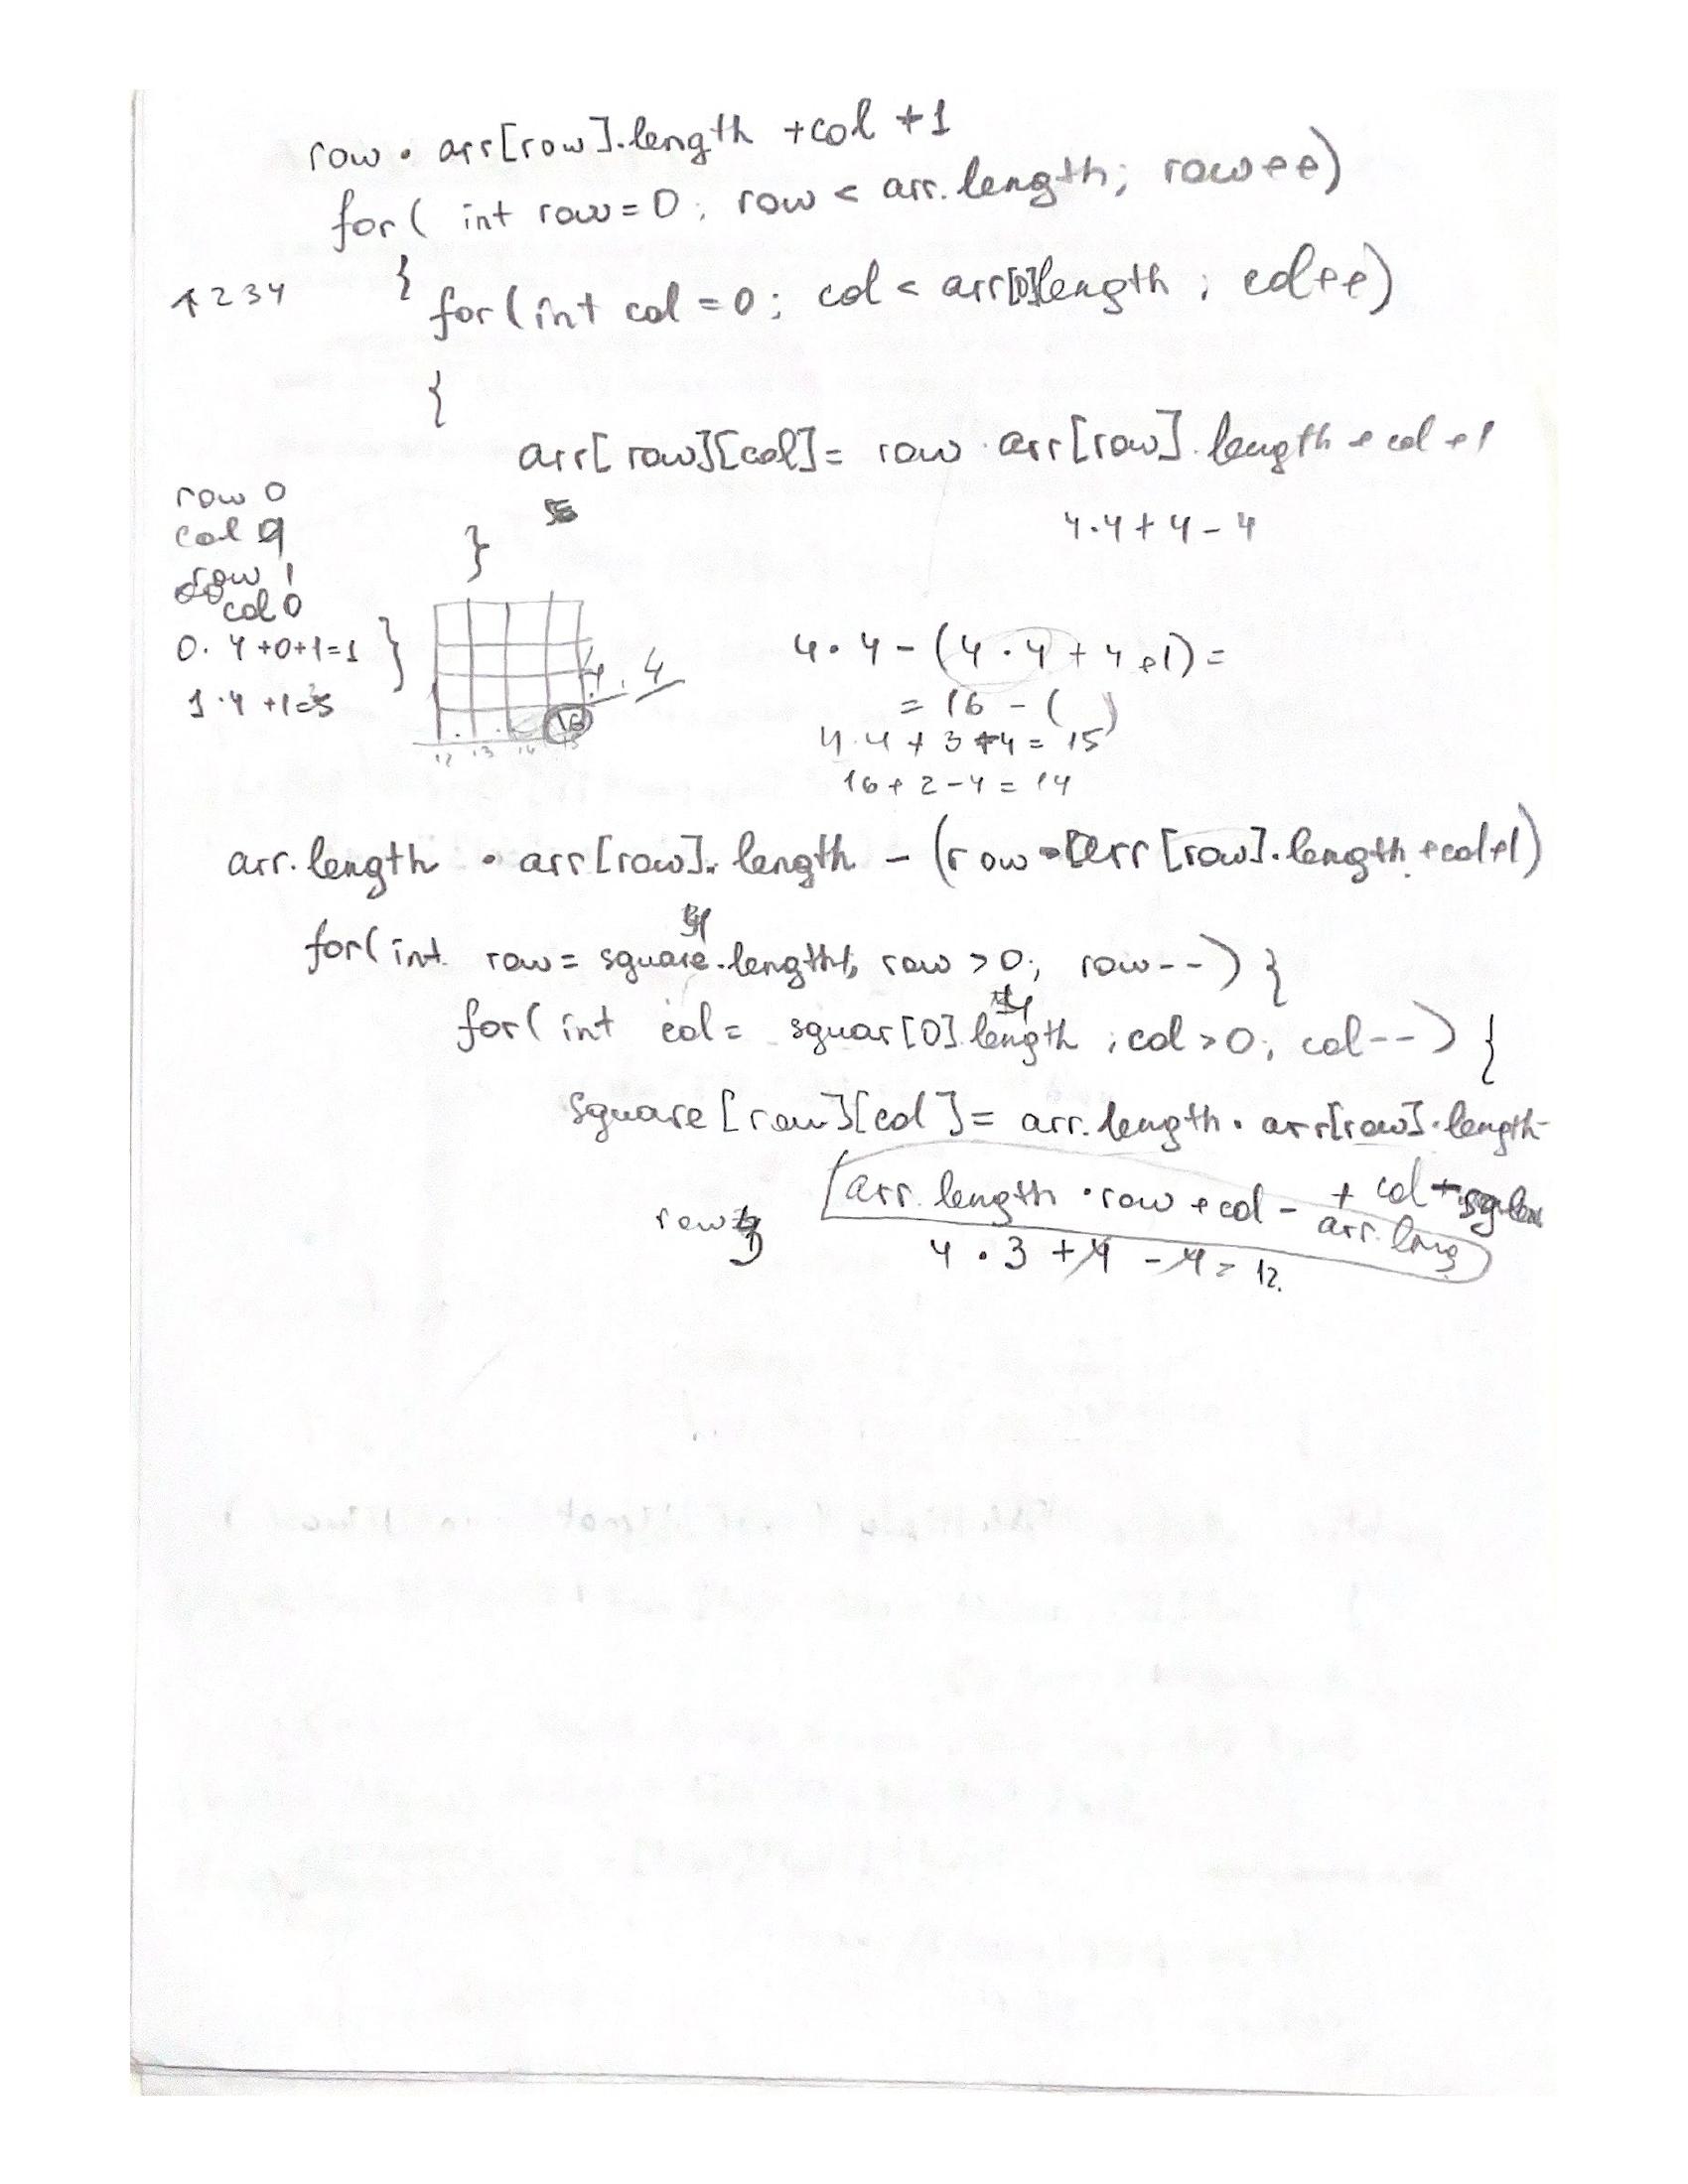 row · arr[row].length +col +1
for( int row=0; row < arr.length; row++)
1234
{
for(int col=0; col < arr[0]length; col++)
{
arr[row][col]= row · arr[row].length + col +1
row 0
col
4·4+4-4
}
row 1
col 0
0·4+0+1=1
}
1·4+1=5
4·4
16
12 13 14 15
4·4-(4·4+4+1)=
= 16 - ( )
4·4+3-4=15
16+2-4=14
arr.length · arr[row].length - (row · arr[row].length +col+1)
for(int row= square.length; row >0; row--) {
for( int col= squar[0].length ;col>0; col--) {
square[row][col]= arr.length · arr[row].length-
arr.length · row +col - + col
arr.leng
row
4·3+4-4=12.